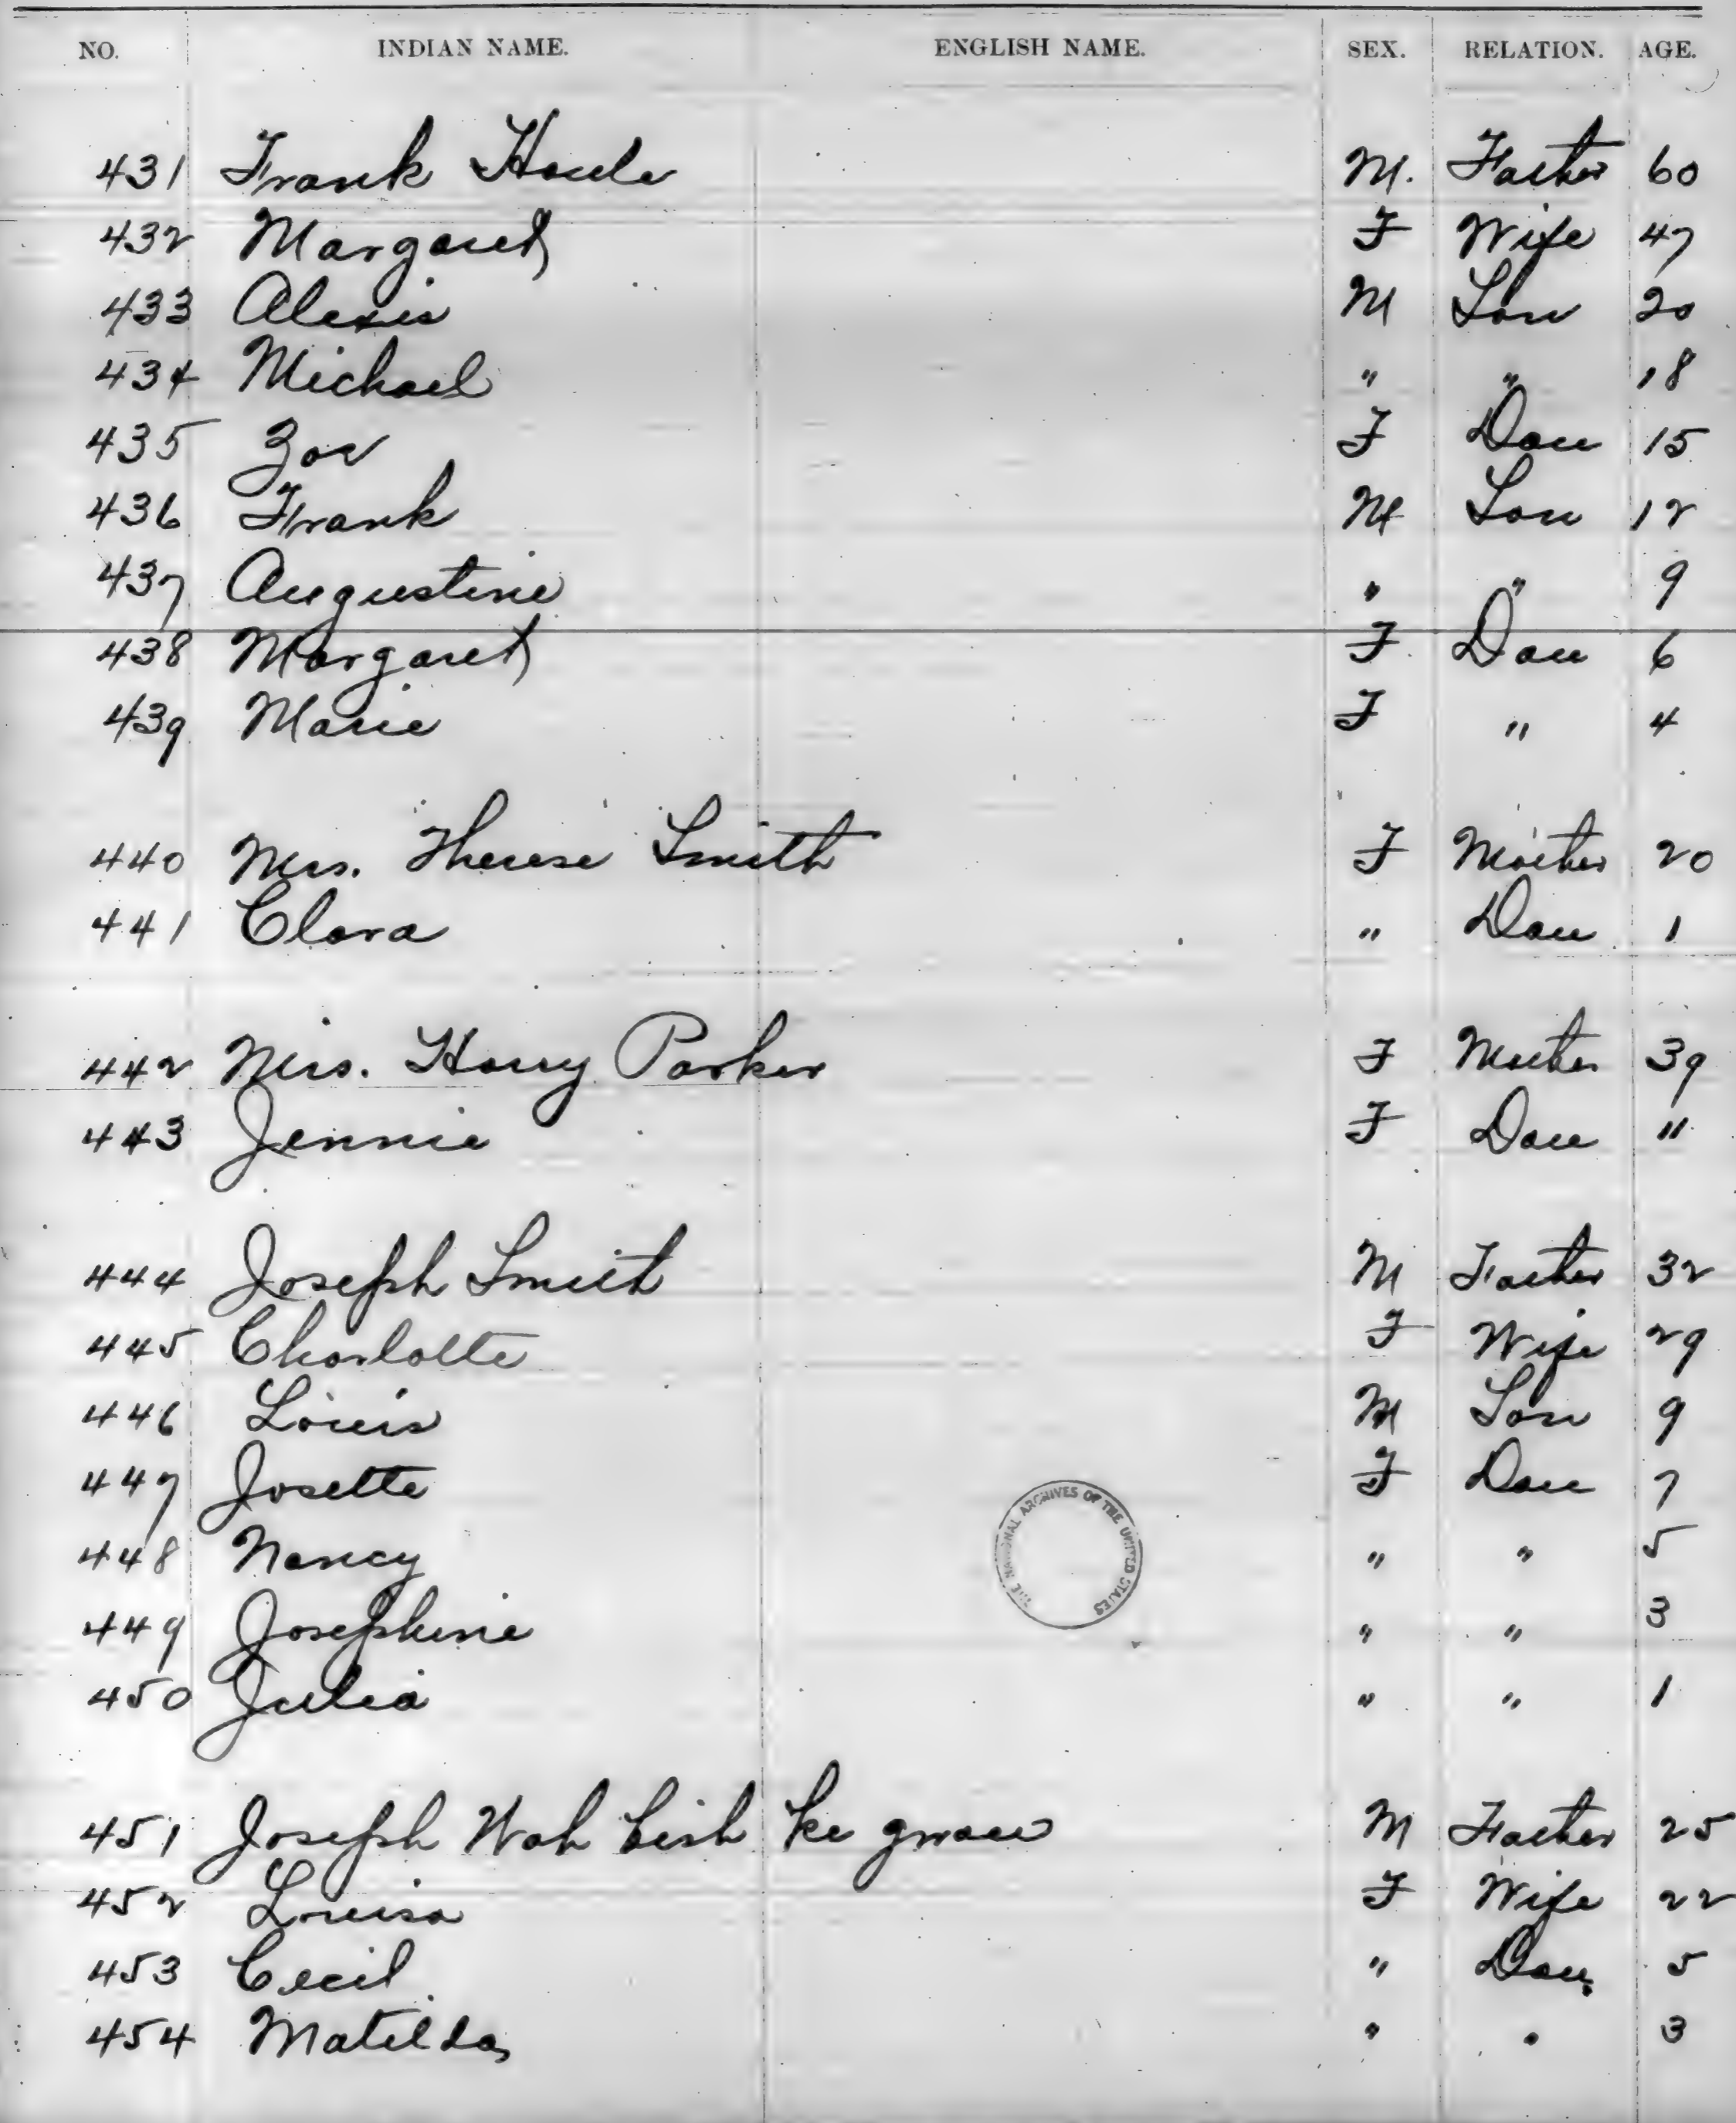 NO. INDIAN NAME. ENGLISH NAME. SEX. RELATION. AGE.
431 Frank Houle M. Father 60
432 Margaret F Wife 47
433 Alexis M Son 20
434 Michael " " 18
435 Zoe F Dau 15
436 Frank M Son 12
437 Augustine " " 9
438 Margaret F. Dau 6
439 Marie F " 4
440 Mrs. Therese Smith F Mother 20
441 Clara " Dau 1
442 Mrs. Harry Parker F Mother 39
443 Jennie F Dau 11
444 Joseph Smith M Father 32
445 Charlotte F Wife 29
446 Louis M Son 9
447 Josette F Dau 7
448 Nancy " " 5
449 Josephine " " 3
450 Julia " " 1
THE NATIONAL ARCHIVES OF THE UNITED STATES
451 Joseph Wah bish ke gwau M Father 25
452 Louisa F Wife 22
453 Cecil " Dau. 5
454 Matilda " " 3